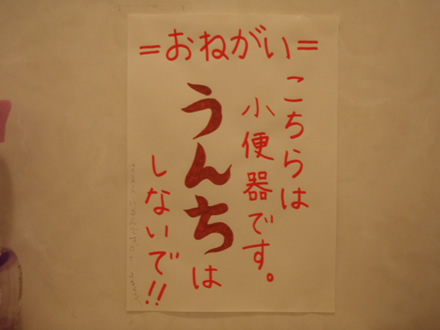 =おねがい=
こちらは
小便器です。
うんちは
しないで!!